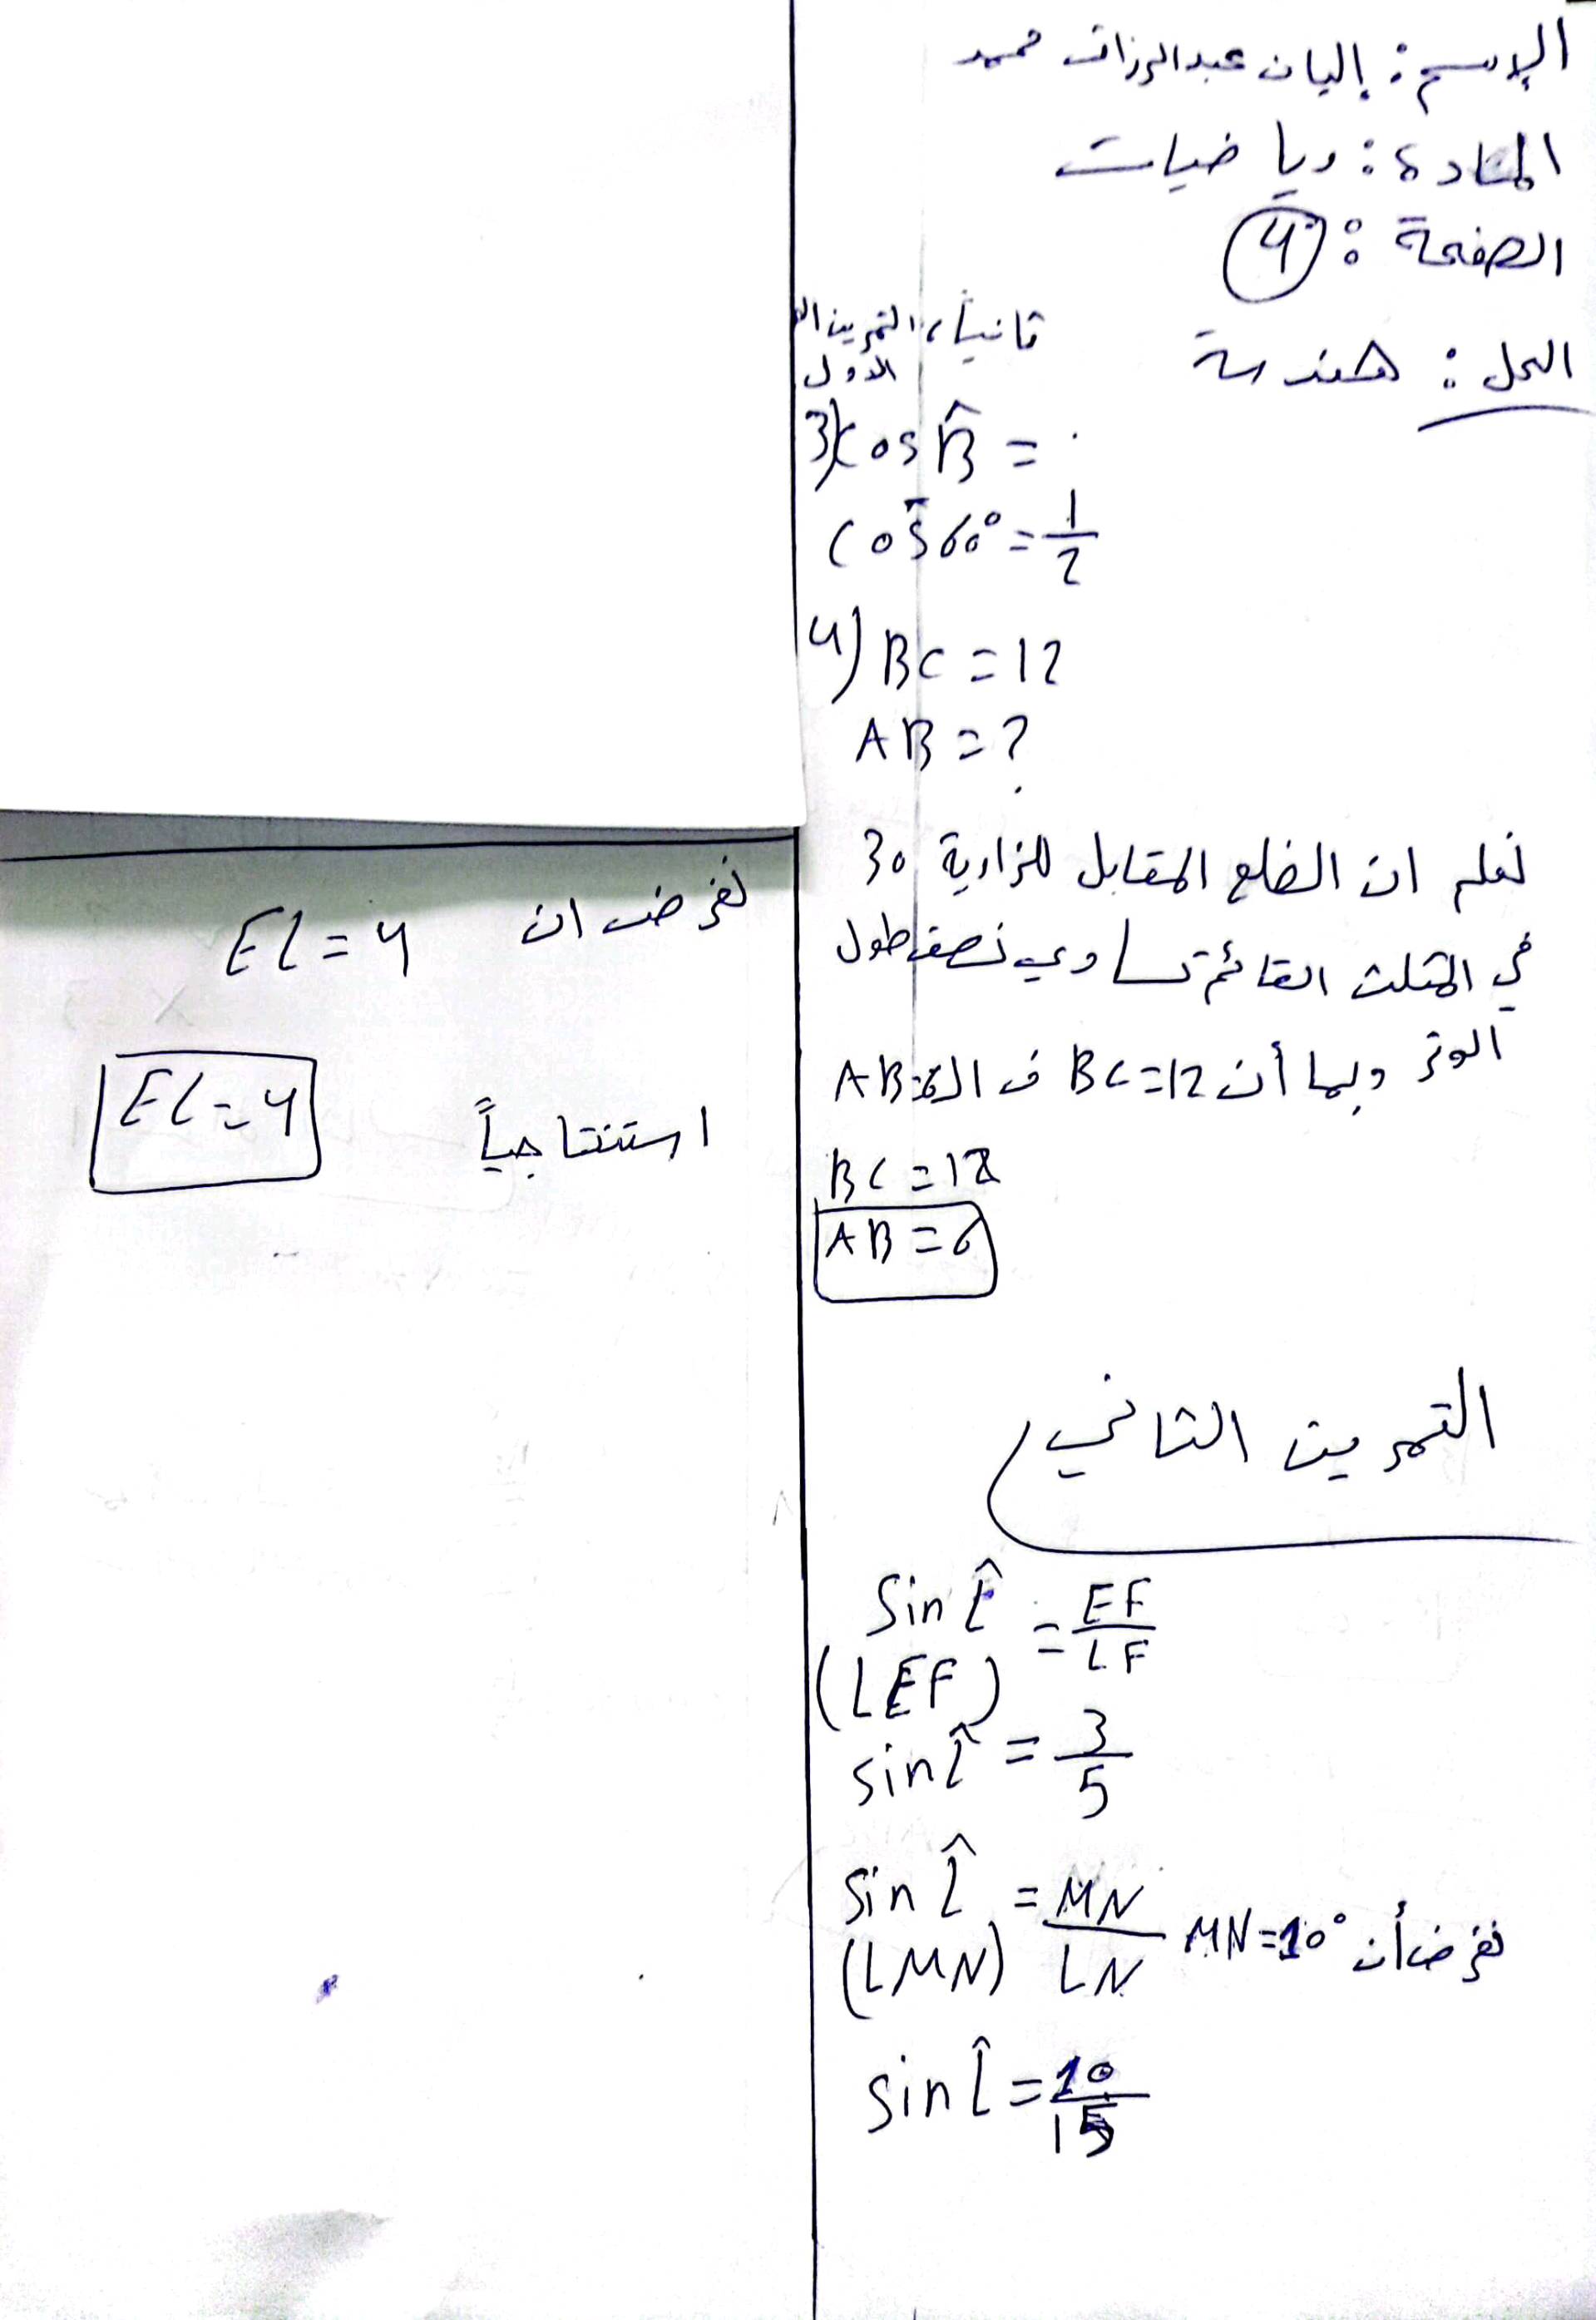 الإسم: إليان عبدالرزاق محمد
المادة: رياضيات
الصفحة: 4
الحل: هندسة
ثانياً، التمرين
الأول
3) cos B̂ =
cos 60° = 1/2
4) BC = 12
AB = ?
نعلم ان الضلع المقابل للزاوية 30
في المثلث القائم تساوي نصف طول
الوتر وبما أن BC = 12
BC = 12
AB = 6
التمرين الثاني
Sin L̂ = EF/LF
(LEF)
sin L̂ = 3/5
Sin L̂ = MN/LN نفرض أن MN = 10°
(LMN)
sin L̂ = 10/15
نفرض ان EL = 4
استنتاجياً EL = 4